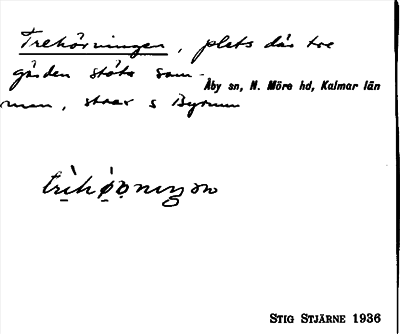 Trehörningen, plats där tre
gården stöta sam-
Åby sn, N. Möre hd, Kalmar län
man, strax s Byrum
STIG STJÄRNE 1936